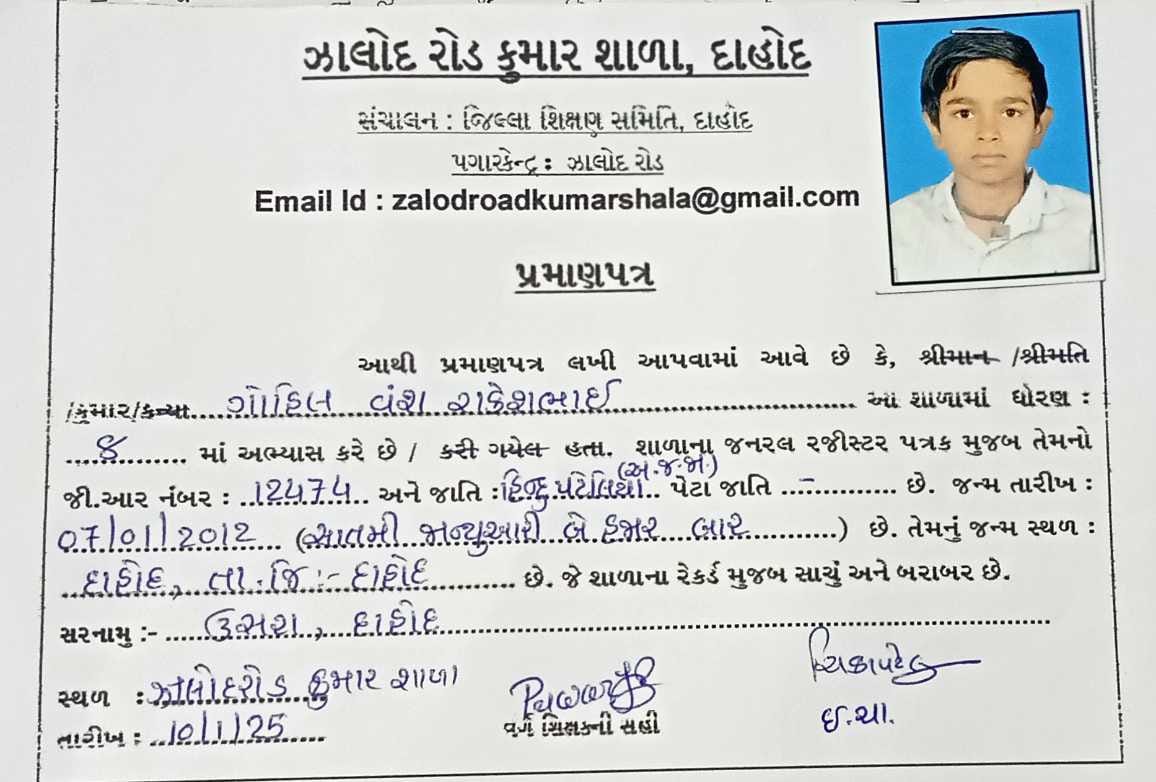 ઝાલોદ રોડ કુમાર શાળા, દાહોદ
સંચાલન : જિલ્લા શિક્ષણ સમિતિ, દાહોદ
પગારકેન્દ્ર : ઝાલોદ રોડ
Email Id : zalodroadkumarshala@gmail.com
પ્રમાણપત્ર
આથી પ્રમાણપત્ર લખી આપવામાં આવે છે કે, શ્રીમાન /શ્રીમતિ
/કુમાર/કન્યા.....ગોહિલ વંશ રાકેશભાઈ..... આ શાળામાં ધોરણ :
.....૪..... માં અભ્યાસ કરે છે / કરી ગયેલ હતા. શાળાના જનરલ રજીસ્ટર પત્રક મુજબ તેમનો
(અ.જ.જા.)
જી.આર નંબર : ..12474.. અને જાતિ :હિન્દુ પટેલિયા.. પેટા જાતિ ....-.... છે. જન્મ તારીખ :
07/01/2012.... (સાતમી જાન્યુઆરી બે હજાર બાર.....) છે. તેમનું જન્મ સ્થળ :
..દાહોદ, તા.જિ :- દાહોદ..... છે. જે શાળાના રેકર્ડ મુજબ સાચું અને બરાબર છે.
સરનામુ :- ..... , દાહોદ.....
સ્થળ : ઝાલોદરોડ કુમાર શાળા
તારીખ : ..10/1/25.....
વર્ગ શિક્ષકની સહી
ઈ.ચા.